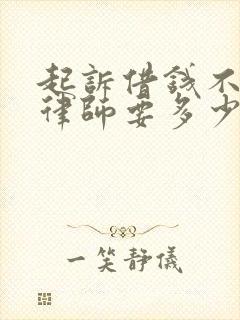 起訴借錢不
律師要多少
一笑靜儀